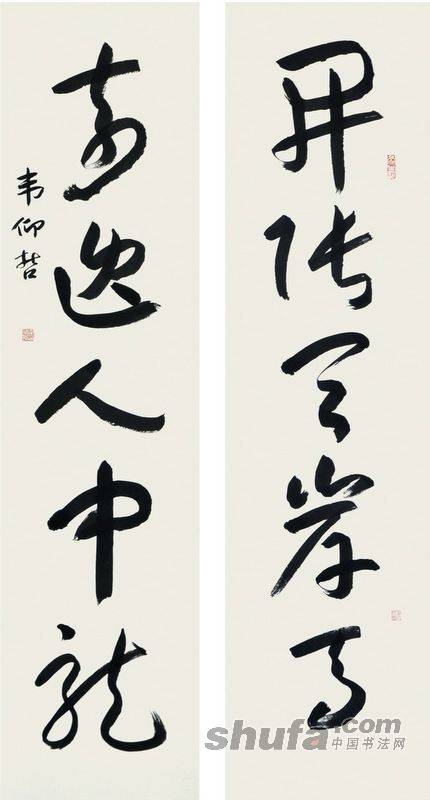 开张天岸马
奇逸人中龙
韦仰哲
shufa.com
中国书法网